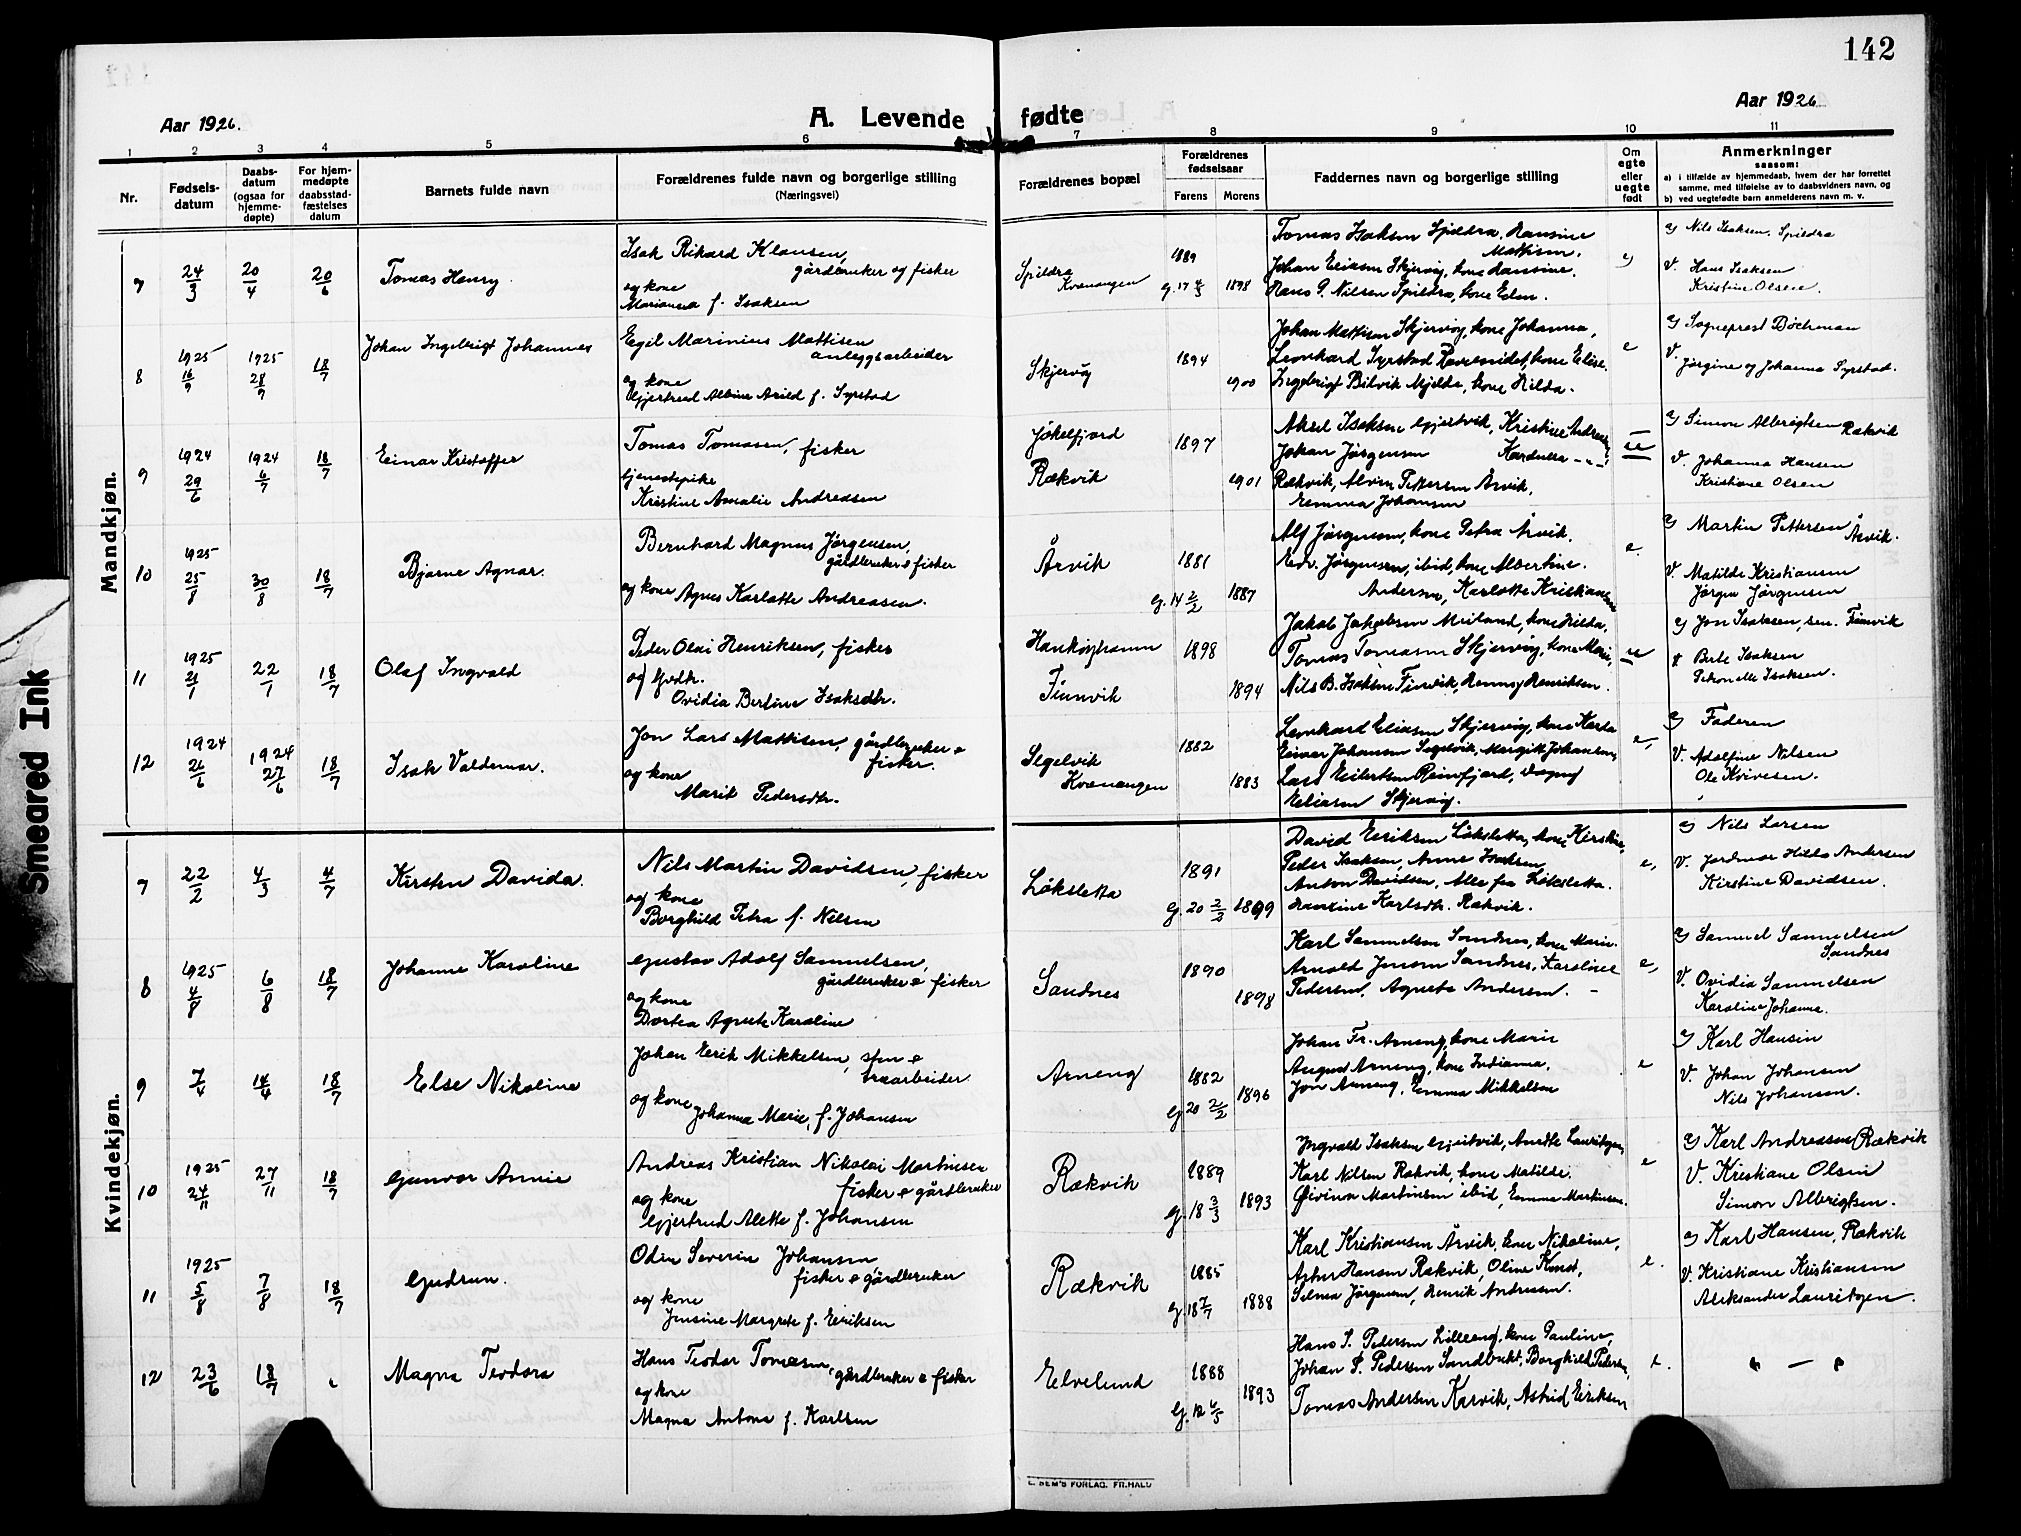 142
Aar 1926.
A. Levende fødte
Aar 1926
1 2 3 4 5 6 7 8 9 10 11
Nr.
Fødsels-
datum
Daabs-
datum
(ogsaa for
hjemme-
døpte)
For hjem-
medøpte
daabsstad-
fæstelses
datum
Barnets fulde navn
Forældrenes fulde navn og borgerlige stilling
(Næringsvei)
Forældrenes bopæl
Forældrenes
fødselsaar
Farens Morens
Faddernes navn og borgerlige stilling
Om
egte
eller
uegte
født
Anmerkninger
saasom:
a) i tilfælde av hjemmedaab, hvem der har forrettet
samme, med tilføielse av to daabsvidners navn, og
b) ved uegtefødte barn anmelderens navn m. v.
Mandkjøn.
7 24/3 20/4 20/6 Tomas Henry
Isak Rikard Klausen,
gårdbruker og fisker
og kone
Marianna f. Isaksen
Spildra
Kvænangen
1889
g. 17 4/3 1898
Tomas Isaksen Spildra, Hansine
Mattisen.
Johan Eliasen Skjervøy, kone Hansine.
Hans P. Nilsen Spildra, kone Eden.
Nils Isaksen, Spildra
V. Hans Isaksen
Kristine Olsen.
8 1925 16/9 1925 28/9 18/7 Johan Ingebrigt Johannes
Egil Marinius Mattisen
anleggsarbeider
og kone
Gjertrud Albine Arild f. Syrstad
Skjervøy
1894
1900
Johan Mattisen Skjervøy, kone Johanna,
Leonhard Syrstad Havnnidet, kone Elise.
Ingebrigt Bilvik Mjelde, kone Hilda.
e
Sogneprest Bøchman
V.
Jørgine og Johanna Syrstad.
9 1924 29/6 1924 6/7 18/7 Einar Kristoffer
Tomas Tomasen, fisker
tjenestepike
Kristine Amalie Andreasen
Jøkelfjord
Rækvik
1897
1901
Aksel Isaksen Gjertvik, Kristine Andreasen
Johan Jørgensen
Rækvik, Alvin Pettersen Arvik,
Emma Johansen
ue
Simon Albrigtsen Rækvik
V. Johanna Hansen
Kristiane Olsen
10 1925 25/8 30/8 18/7 Bjarne Agnar.
Bernhard Magnus Jørgensen,
gårdbruker & fisker
og kone Agnes Karlotte Andreasen.
Årvik
1881
g. 14 2/2 1887
Alf Jørgensen, kone Petra Årvik.
Edv. Jørgensen, ibid, kone Albertine.
Andersen, Karlotte Kristiansen
e.
Martin Pettersen Årvik.
V. Matilde Kristiansen
Jørgen Jørgensen
11 1925 21/1 22/1 18/7 Olaf Ingvald
Peder Olai Henriksen, fisker
og Gvdk.
Ovidia Berline Isaksdtr.
Haukøyhamn
Finnvik
1898
1894
Jakob Jakobsen Meiland, kone Hilda.
Tomas Tomasen Skjervøy, kone Marie,
Nils B. Isaksen Finvik, Henny Henriksen.
ue
Jon Isaksen, sen. Finvik
V. Berle Isaksen
Petronelle Isaksen.
12 1924 26/6 1924 27/6 18/7 Isak Valdemar.
Jon Lars Mattisen, gårdbruker &
fisker.
og kone
Marit Pedersdtr.
Segelvik
Kvænangen
1882
1883
Leonhard Eliasen Skjervøy, kone Karla
Einar Johansen Segelvik, Margit Johansen,
Lars Eilertsen Reinfjord, Dagny
Eliasen Skjervøy.
e,
Faderen
V. Adolfine Nilsen
Ole Kvivesen.
Kvindekjøn.
7 22/2 4/3 4/7 Kirsten Davida.
Nils Martin Davidsen, fisker
og kone
Borghild Petra f. Nilsen
Løksletta
1891
g. 20 2/2 1899
David Eriksen Løksletta, kone Kirstine,
Peder Isaksen, Anne Isaksen,
Anton Davidsen, Alle fra Løksletta.
Hansine Karlsdtr. Rækvik.
e,
Nils Larsen
V. Jordmor Hilda Andersen
Kirstine Davidsen.
8 1925 4/8 6/8 18/7 Johanne Karoline
Gustav Adolf Samuelsen,
gårdbruker & fisker
og kone
Dortea Agnete Karoline
Sandnes
1890
1898
Karl Samuelsen Sandnes, kone Marie.
Arnold Jensen Sandnes, Karoline
Pedersen, Agnete Andersen. -
e,
Samuel Samuelsen
Sandnes
V. Ovidia Samuelsen
Karoline Johanna.
9 7/4 14/4 18/7 Else Nikoline
Johan Erik Mikkelsen, sten &
træarbeider
og kone
Johanna Marie, f. Johansen
Arneng
1882
g. 20 2/2 1896
Johan Fr. Arneng, kone Marie
August Arneng, kone Indianna.
Jon Arneng, Emma Mikkelsen
e
Karl Hansen
V. Johan Johansen
Nils Johansen.
10 1925 24/11 27/11 18/7 Gunvor Annie
Andreas Kristian Nikolai Martinsen
fisker & gårdbruker
og kone
Gjertrud Alette f. Johansen
Rækvik
1889
g. 18 3/3 1893
Ingvald Isaksen Gjertvik, Anette Lauritzen,
Karl Nilsen Rækvik, kone Matilde.
Martinsen ibid, Emma Martinsen.
e
Karl Andreassen Rækvik
V. Kristiane Olsen
Simon Albrigtsen.
11 1925 5/8 7/8 18/7 Gudrun.
Odin Severin Johansen,
fisker & gårdbruker
og kone
Jensine Margrete f. Eriksen
Rækvik
1885
g. 18 7/7 1888
Karl Kristiansen Årvik, kone Nikoline,
Artur Hansen Rækvik, Oline Kunst,
Selma Jørgensen, Henrik Andresen.
e.
Karl Hansen, Rækvik
V. Kristiane Kristiansen
Aleksander Lauritzen.
12 23/6 18/7 Magna Teodora
Hans Teodor Tomasen,
gårdbruker & fisker
og kone
Magna Antona f. Karlsen
Elvelund
1888
g. 12 6/5 1893
Hans S. Pedersen Lilleeng, kone Pauline,
Johan P. Pedersen Sandbukt, Borghild Pedersen,
Tomas Andersen Karvik, Astrid Eriksen
e.
" — "
FORLAG, FR.HALD
Smeared Ink